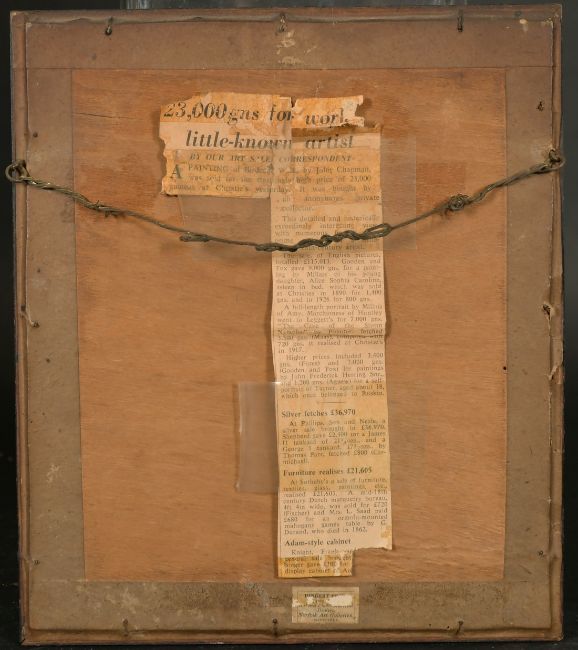 23,000 gns for work
little-known artist
BY OUR ART SALES CORRESPONDENT
A PAINTING of by John Chapman,
was sold for the high price of 23,000
at Christie's yesterday. It was bought by
an anonymous private
collector.
This detailed and historically
exceedingly interesting
with numerous
some
artist.
The sale of English pictures,
totalled £115,013. Gooden and
Fox gave 9,000 gns. for a paint-
ing by Millais of his young
daughter, Alice Sophia Caroline,
asleep in bed, which was sold
at Christies in 1890 for 1,400
gns. and in 1926 for 800 gns.
A full-length portrait by Millais
of Amy, Marchioness of Huntley
went to Leggett's for 7,000 gns.
"The Cave of the Storm
Nymphs" by Poynter, fetched
gns. (Maas), compared with
720 gns. it realised at Christie's
in 1917.
Higher prices included 3,400
gns. (Fores) and 3,000 gns.
(Gooden and Fox) for paintings
by John Frederick Herring Snr.,
and 1,200 gns. (Agnew) for a self-
portrait of Turner, aged about 18,
which once belonged to Ruskin.
Silver fetches £36,970
At Phillips, Son and Neale, a
silver sale brought in £36,970.
Shepherd gave £2,400 for a James
II tankard of and a
George I tankard, by
Thomas Parr, fetched £800
Furniture realises £21,605
At Sotheby's a sale of furniture,
textiles, glass, paintings, etc.,
realised £21,605. A mid-18th
century Dutch marquetry bureau,
4ft 4in wide, was sold for £720
(Fischer) and Mrs. L. Saad paid
£680 for an ormolu-mounted
mahogany games table by G.
Durand, who died in 1862.
Adam-style cabinet
Knight, Frank
general sale brought
gave £300 for
display cabinet of
Norfolk Art Galleries